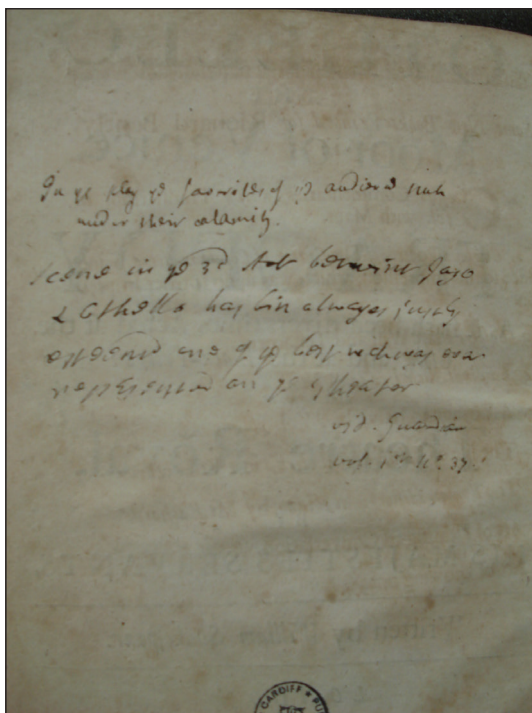 In ye play ye favorites of ye audience sink
under their calamity.
scene in ye 3d Act betwixt Jago
& Othello has bin always justly
esteemd one of ye best wch was ever
represented on ye theater
vid. Guardian
vol. 1st No. 37.
CARDIFF PU